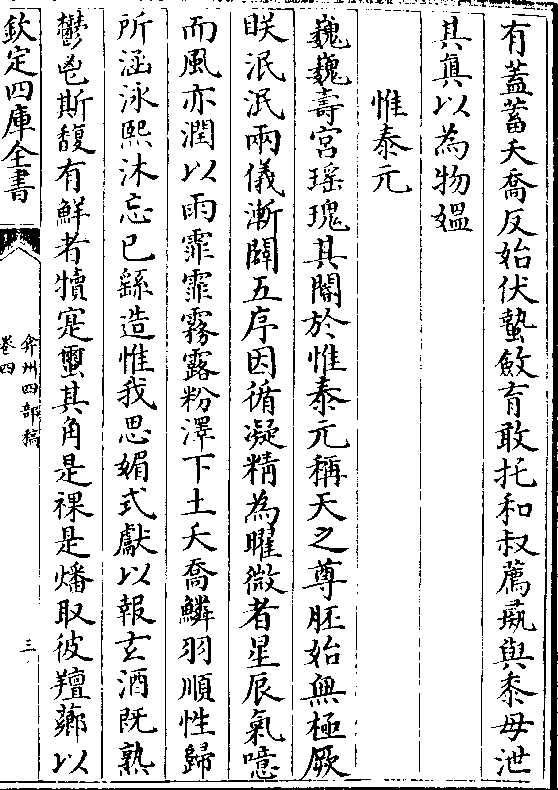 有蓋蓄夭喬反始伏蟄斂育敢托和叔薦蓺與黍毋泄
其眞以為物媼
惟泰元
巍巍壽宮瑶瑰其閣於惟泰元稱天之尊胚始無極厥
眹泯泯兩儀漸闢五序因循凝精為曜微者星辰氣噫
而風亦潤以雨霏霏霧露粉澤下土夭喬鱗羽順性歸
所涵泳熙沐忘已繇造惟我思媚式獻以報玄酒既熟
鬱鬯斯馥有鮮者犢寔蠒其角是祼是燔取彼羶薌以
欽定四庫全書
弇州四部稿
卷四
三